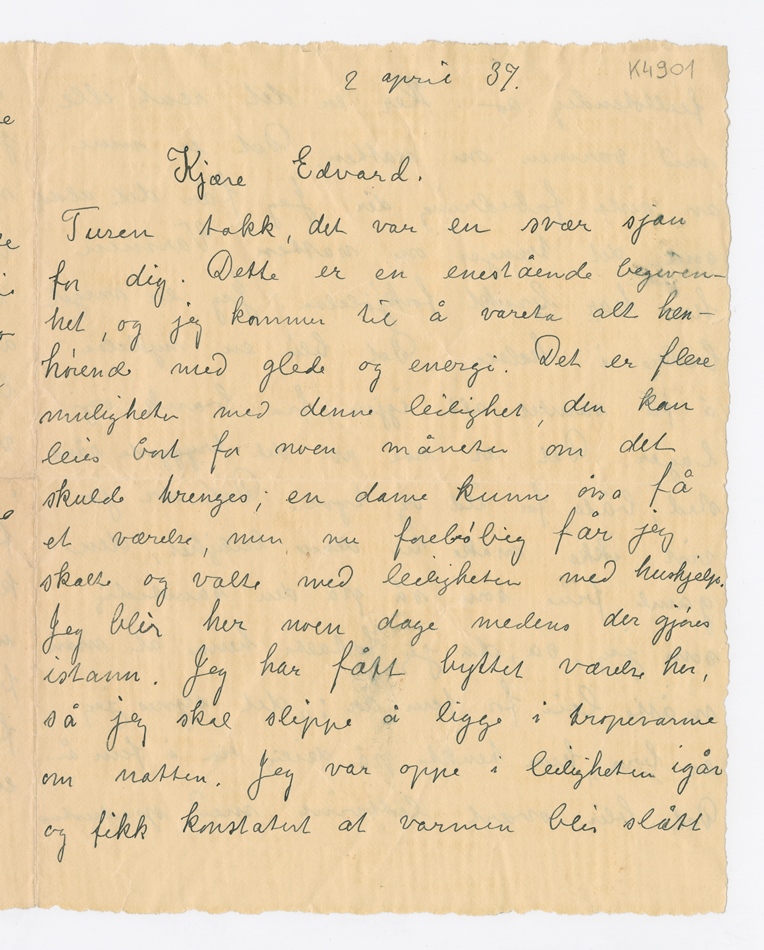 K4901
2 april 37.
Kjære Edvard.
Tusen takk, det var en svær sjau
for dig. Dette er en enestående begiven-
het, og jeg kommer til å vareta alt hen-
hørende med glede og energi. Det er flere
muligheter med denne leilighet, den kan
leies bort for noen måneder om det
skulde trenges; en dame kunne også få
et værelse, men nu foreløbig får jeg
skalte og valte med leiligheten med hushjelp.
Jeg blir her noen dage medens der gjøres
istann. Jeg har fått byttet værelse her,
så jeg skal slippe å ligge i tropevarme
om natten. Jeg var oppe i leiligheten igår
og fikk konstatert at varmen blir slått